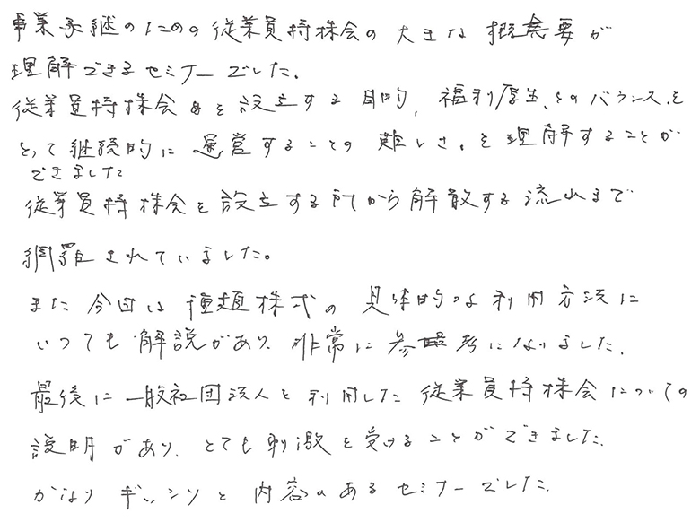 事業承継のための従業員持株会の大きな概要が
理解できるセミナーでした。
従業員持株会を設立する目的、福利厚生とのバランスを
とって継続的に運営することの難しさを理解することが
できました
従業員持株会を設立する所から解散する流れまで
網羅されていました。
また今回は種類株式の具体的な利用方法に
いつても解説があり非常に参考になりました。
最後に一般社団法人を利用した従業員持株会についての
説明があり、とても刺激を受けることができました。
かなりギッシリと内容のあるセミナーでした。